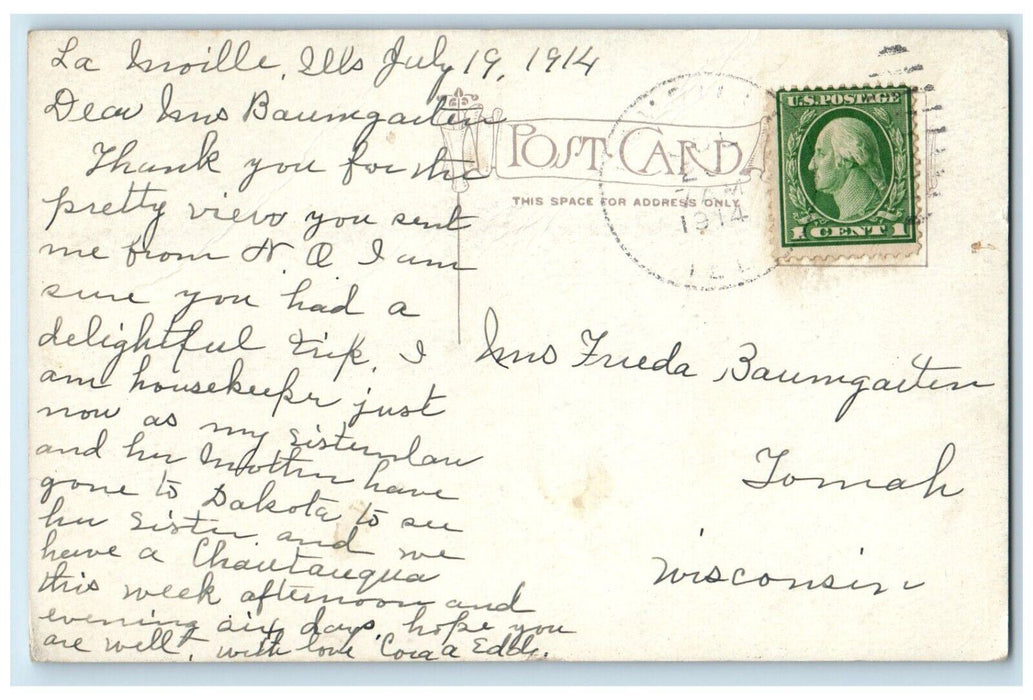 La Moille, Ills July 19, 1914
Dear Mrs Baumgarten
Thank you for the
pretty view you sent
me from N O I am
sure you had a
delightful trip. I
am housekeeper just
now as my sisterinlaw
and her Mother have
gone to Dakota to see
her sister and we
have a Chautauqua
this week afternoon and
evening six days, hope you
are well, with love Cora a Eddy.
POST CARD
THIS SPACE FOR ADDRESS ONLY
1914
ILL
U.S. POSTAGE
1 CENT 1
Mrs Frieda Baumgarten
Tomah
Wisconsin